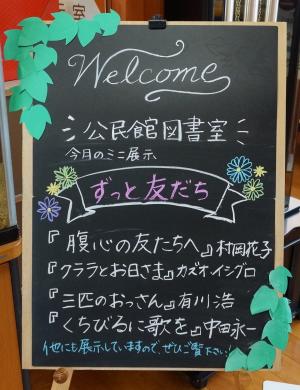 Welcome
公民館図書室
今月のミニ展示
ずっと友だち
『腹心の友たちへ』村岡花子
『クララとお日さま』カズオイシグロ
『三匹のおっさん』有川浩
『くちびるに歌を』中田永一
他にも展示していますので、ぜひご覧下さい!
室